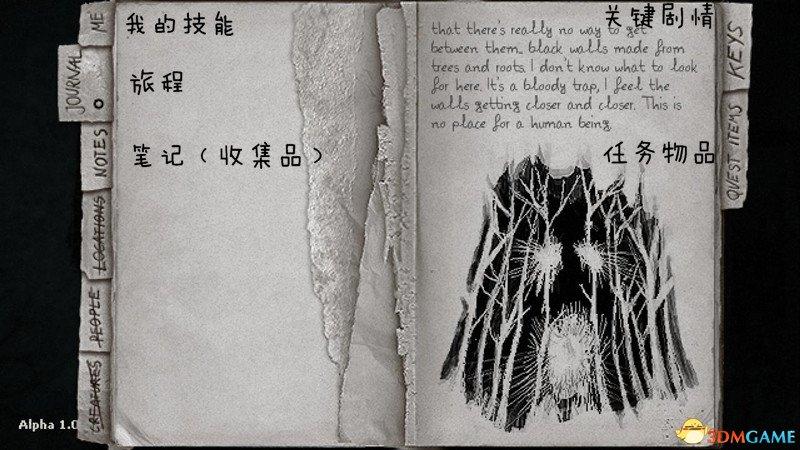 我的技能
ME
JOURNAL
旅程
笔记（收集品）
NOTES
LOCATIONS
PEOPLE
CREATURES
Alpha 1.0
关键剧情
that there's really no way to get
between them... black walls made from
trees and roots. I don't know what to look
for here. It's a bloody trap, I feel the
walls getting closer and closer. This is
no place for a human being.
任务物品
KEYS
QUEST ITEMS
3DMGAME